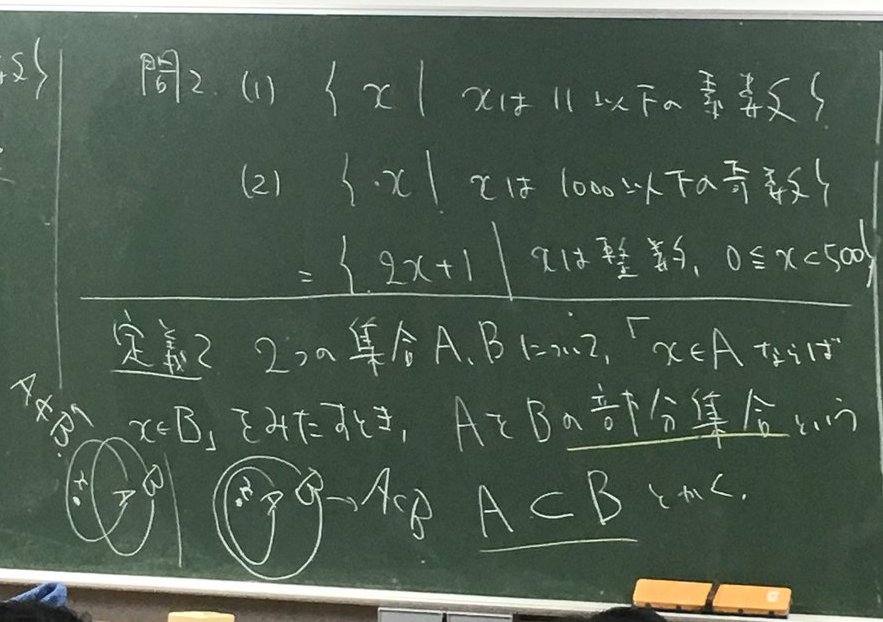 数}
問2. (1) { x | xは 11以下の素数}
(2) { x | xは 1000以下の奇数}
= { 2x+1 | xは整数, 0≦x<500}
定義2 2つの集合A, Bについて,「x∈A ならば
x∈B」をみたすとき, AをBの部分集合という
A⊄B
x A B
x A B → A⊂B A⊂B とかく.